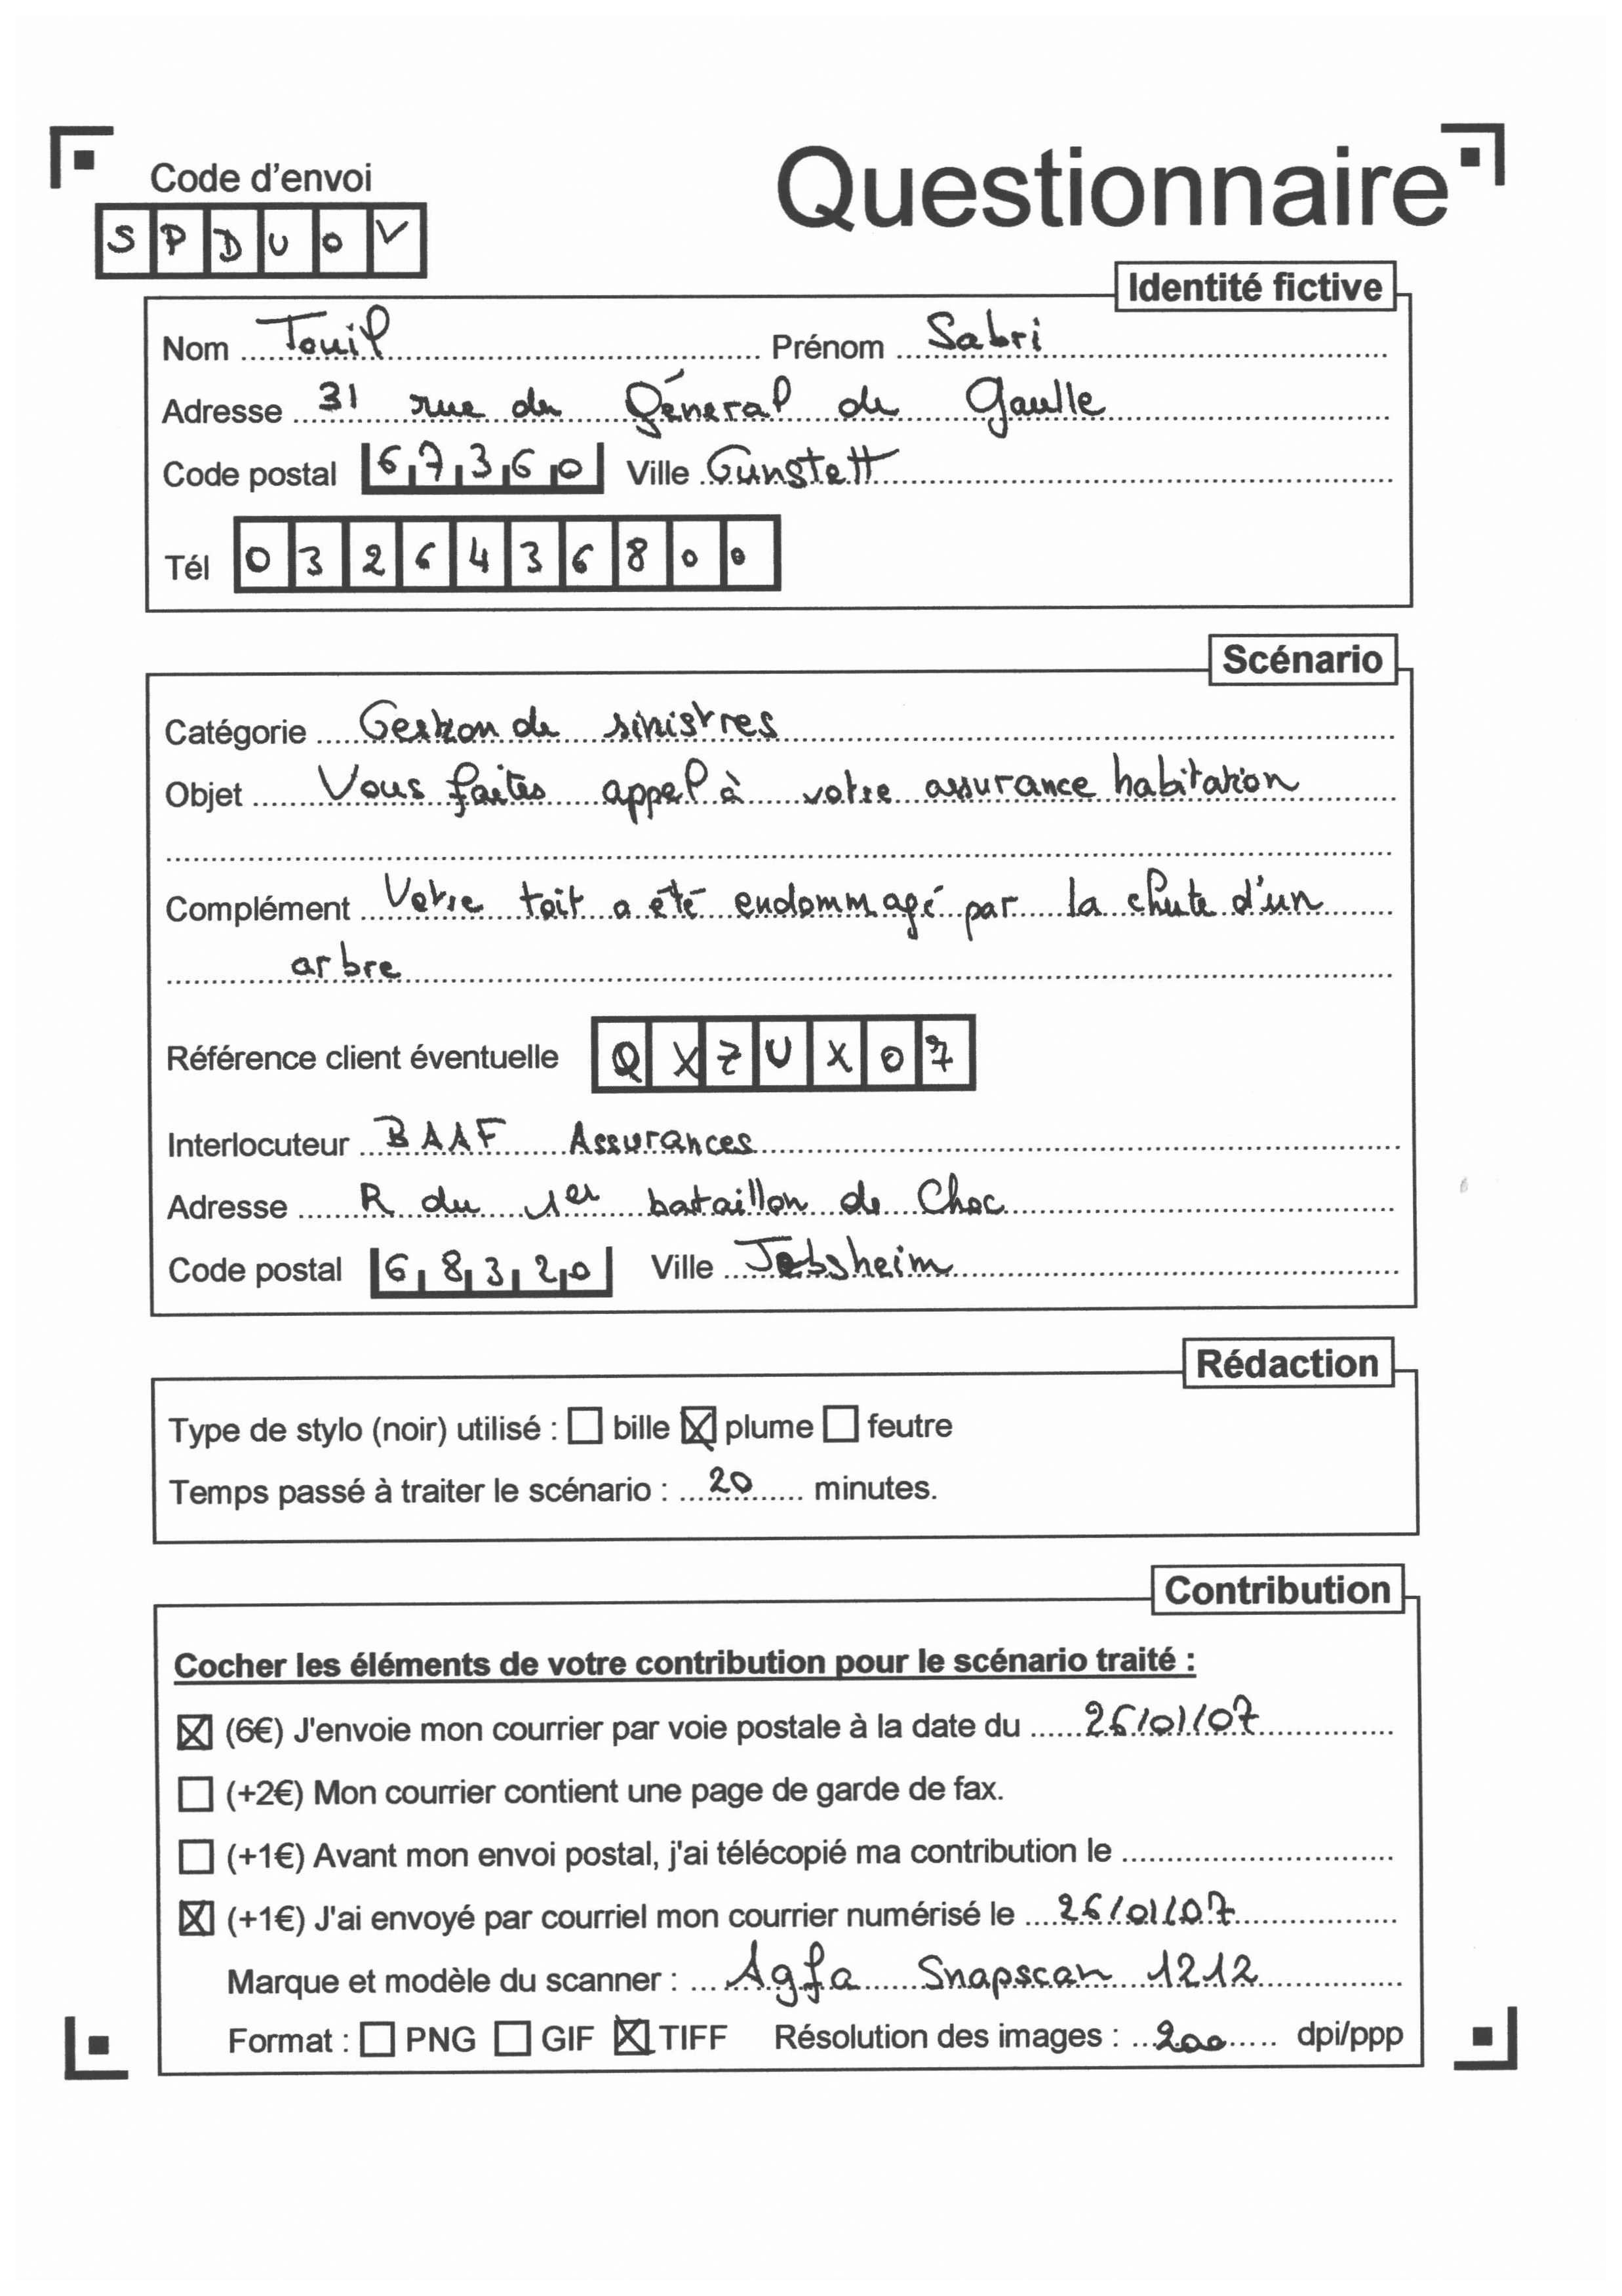 Questionnaire
Code d'envoi
S P D U O V
Identité fictive
Nom Touil Prénom Sabri
Adresse 31 rue du Géneral de Gaulle
Code postal 67360 Ville Gunstett
Tél 0326436800
Scénario
Catégorie Gestion de sinistres
Objet Vous faites appel à votre assurance habitation
Complément Votre toit a été endommagé par la chute d'un
arbre
Référence client éventuelle QXZUX07
Interlocuteur BAAF Assurances
Adresse R du 1er bataillon de Choc
Code postal 68320 Ville Jebsheim
Rédaction
Type de stylo (noir) utilisé : bille plume feutre
Temps passé à traiter le scénario : 20 minutes.
Contribution
Cocher les éléments de votre contribution pour le scénario traité :
(6€) J'envoie mon courrier par voie postale à la date du 26/01/07
(+2€) Mon courrier contient une page de garde de fax.
(+1€) Avant mon envoi postal, j'ai télécopié ma contribution le
(+1€) J'ai envoyé par courriel mon courrier numérisé le 26/01/07
Marque et modèle du scanner : Agfa Snapscan 1212
Format : PNG GIF TIFF Résolution des images : 200 dpi/ppp